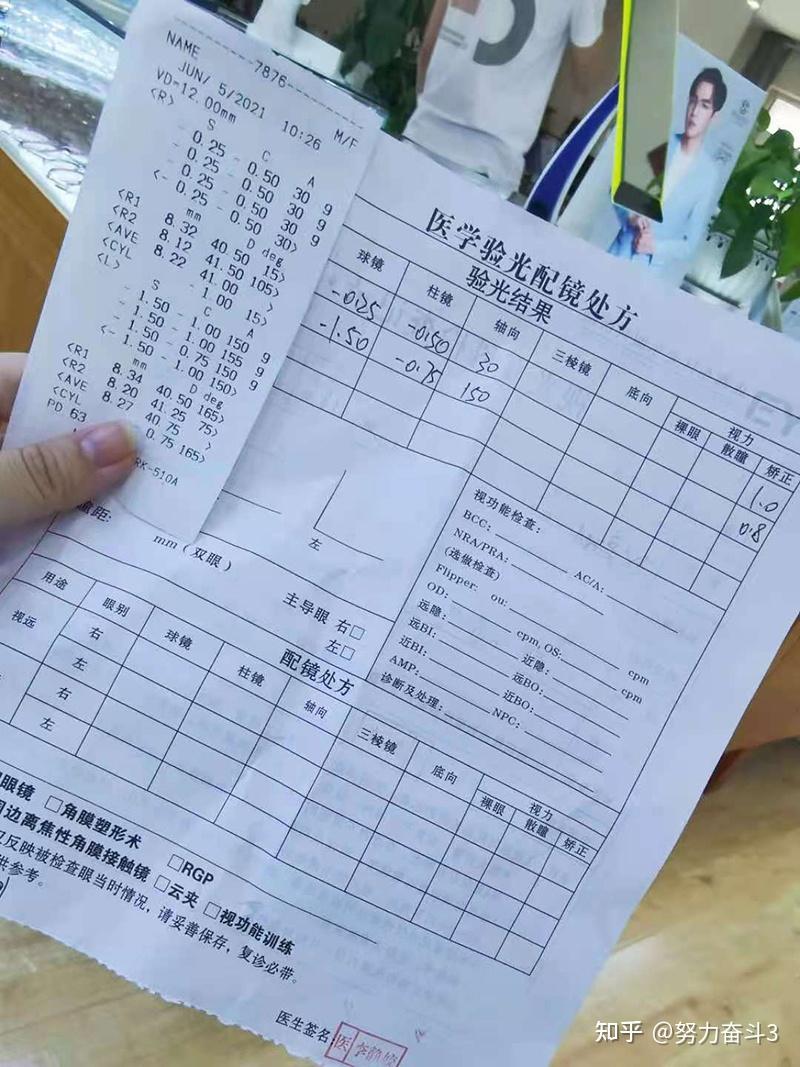 NAME
7876
M/F
JUN/ 5/2021 10:26
VD=12.00mm
<R>
S C A
- 0.25 - 0.50 30 9
- 0.25 - 0.50 30 9
- 0.25 - 0.50 30 9
<- 0.25 - 0.50 30>
mm D deg
<R1 8.32 40.50 15>
<R2 8.12 41.50 105>
<AVE 8.22 41.00 >
<CYL - 1.00 15>
<L>
S C A
- 1.50 - 1.00 150 9
- 1.50 - 1.00 155 9
- 1.50 - 0.75 150 9
<- 1.50 - 1.00 150>
mm D deg
<R1 8.34 40.50 165>
<R2 8.20 41.25 75>
<AVE 8.27 40.75 >
<CYL 0.75 165>
PD 63
RK-510A
医学验光配镜处方
验光结果
球镜 柱镜 轴向 三棱镜 底向 视力
裸眼 散瞳 矫正
-0.25 -0.50 30 1.0
-1.50 -0.75 150 0.8
左
距:
mm(双眼)
主导眼 右□
左□
视功能检查:
BCC: AC/A:
NRA/PRA:
(选做检查)
Flipper: ou: cpm
OD: cpm, OS: cpm
远隐: 近隐:
远BI: 远BO:
近BI: 近BO:
AMP: NPC:
诊断及处理:
配镜处方
用途 眼别 球镜 柱镜 轴向 三棱镜 底向 视力
裸眼 散瞳 矫正
视远 右
左
右
左
眼镜 □角膜塑形术 □RGP
周边离焦性角膜接触镜 □云夹 □视功能训练
仅反映被检查眼当时情况，请妥善保存，复诊必带。
供参考。
医生签名
医
知乎 @努力奋斗3